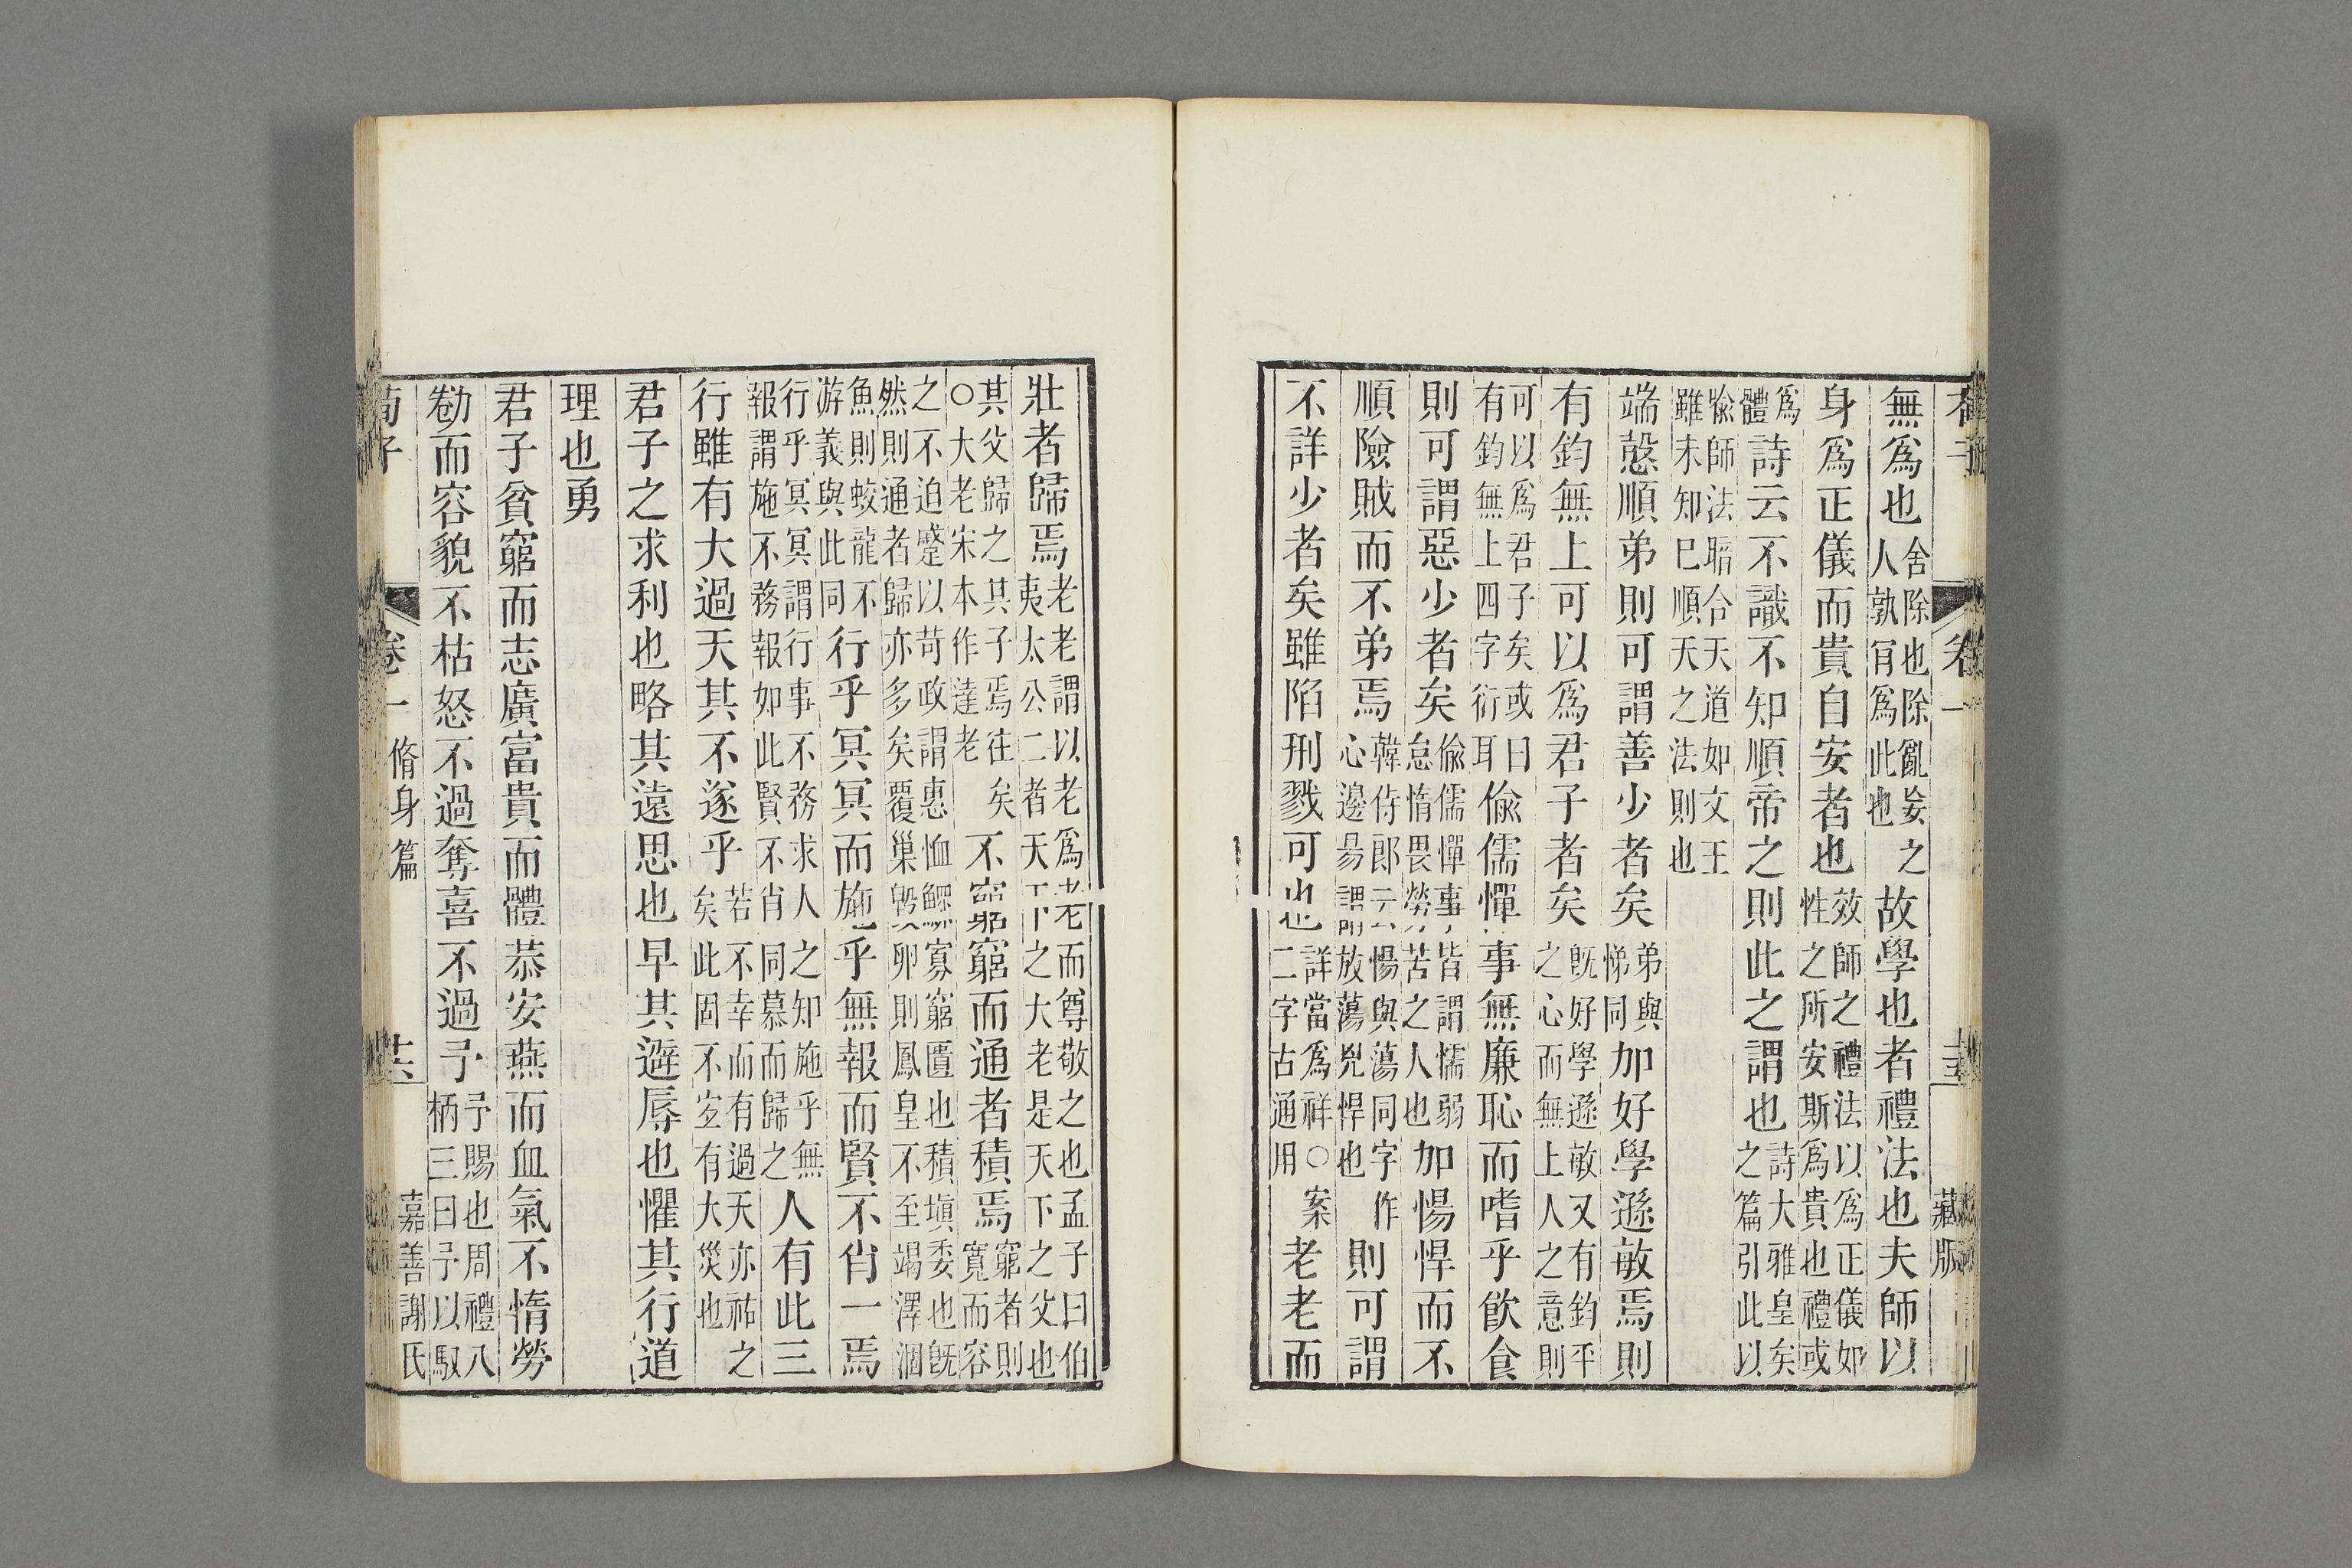 卷一
藏版
無爲也舍除也除亂妄之人孰肯爲此也故學也者禮法也夫師以
身爲正儀而貴自安者也效師之禮法以爲正儀如性之所安斯爲貴也禮或
爲體詩云不識不知順帝之則此之謂也詩大雅皇矣之篇引此以
喩師法暗合天道如文王雖未知已順天之法則也
端慤順弟則可謂善少者矣弟與悌同加好學遜敏焉則
有鈞無上可以爲君子者矣旣好學遜敏又有鈞平之心而無上人之意則
可以爲君子矣或曰有鈞無上四字衍耳偸儒憚事無廉恥而嗜乎飮食
則可謂惡少者矣偸儒憚事皆謂懦弱怠惰畏勞苦之人也加愓悍而不
順險賊而不弟焉韓侍郎云愓與蕩同字作心邊昜謂放蕩兇悍也則可謂
不詳少者矣雖陷刑戮可也詳當爲祥○案二字古通用老老而
壯者歸焉老老謂以老爲老而尊敬之也孟子曰伯夷太公二者天下之大老是天下之父也
其父歸之其子焉往矣○大老宋本作達老不窮窮而通者積焉窮者則寬而容
之不迫蹙以苛政謂惠恤鰥寡窮匱也積塡委也旣然則通者歸亦多矣覆巢毀卵則鳳皇不至竭澤涸
魚則蛟龍不游義與此同行乎冥冥而施乎無報而賢不肖一焉
行乎冥冥謂行事不務求人之知施乎無報謂施不務報如此賢不肖同慕而歸之人有此三
行雖有大過天其不遂乎若不幸而有過天亦祐之矣此固不宜有大災也
君子之求利也略其遠思也早其避辱也懼其行道
理也勇
君子貧窮而志廣富貴而體恭安燕而血氣不惰勞
勌而容貌不枯怒不過奪喜不過予予賜也周禮八柄三曰予以馭
荀子 卷一 脩身篇 嘉善謝氏